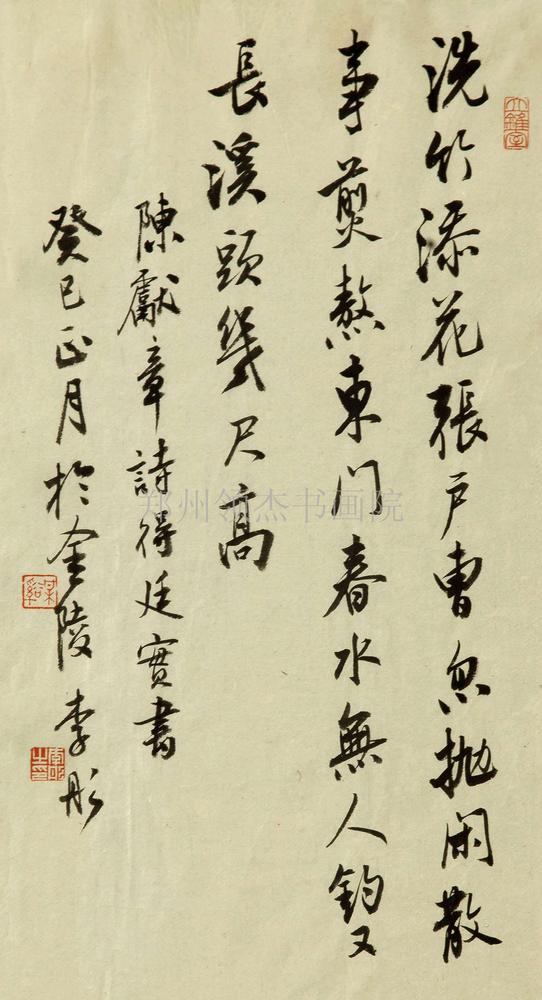 洗竹添花張户曹忽抛闲散
事煎熬東门春水無人釣又
長溪頭幾尺高
陳獻章詩得廷實書
癸巳正月於金陵李彤
郑州领杰书画院